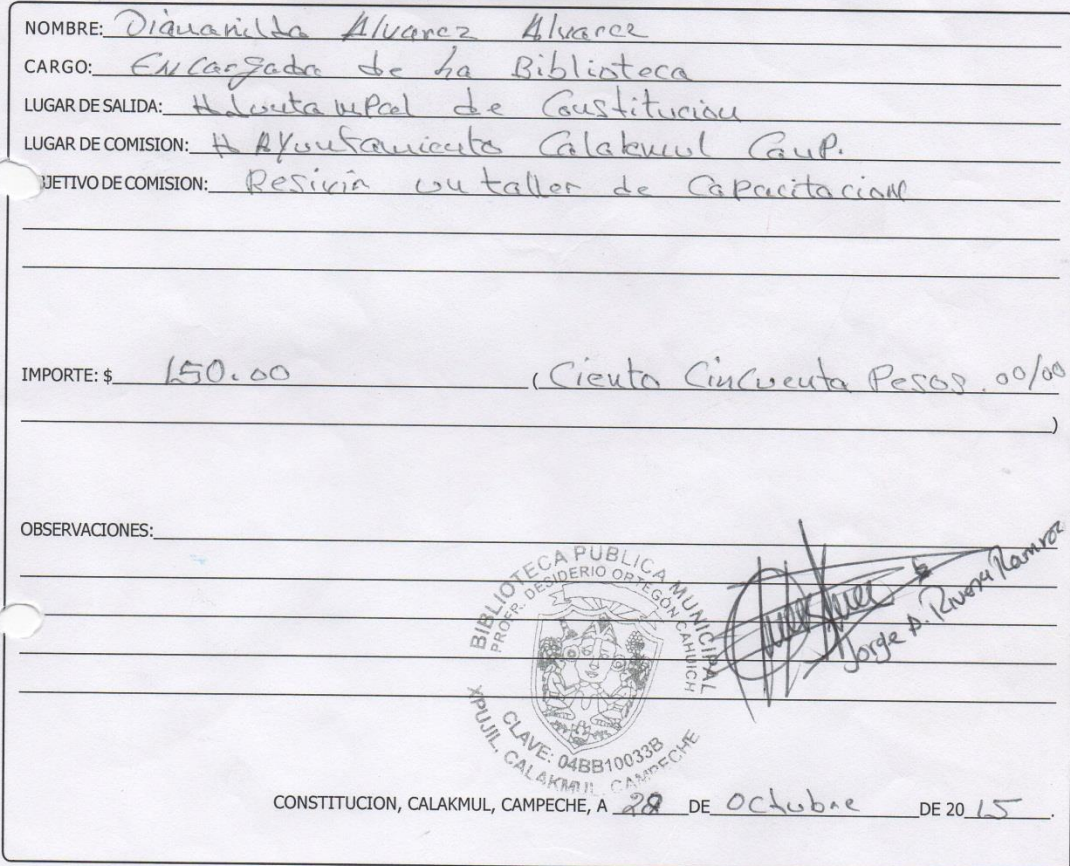 NOMBRE: Diguanilda Alvarez Alvarez
CARGO: ENCargada de La Biblioteca
LUGAR DE SALIDA: H Junta mpal de Constitucion
LUGAR DE COMISION: H Ayuntamiento Calakmul Camp.
BJETIVO DE COMISION: Resivir un taller de Capacitacion
IMPORTE: $ 150.00 ( Ciento Cincuenta Pesos. 00/00
)
OBSERVACIONES:
BIBLIOTECA PUBLICA MUNICIPAL
PROFR. DESIDERIO ORTEGÓN CAHUICH
CLAVE: 04BB10033B
XPUJIL, CALAKMUL, CAMPECHE
Jorge A. Rivera Ramroz
CONSTITUCION, CALAKMUL, CAMPECHE, A 28 DE Octubre DE 20 15.